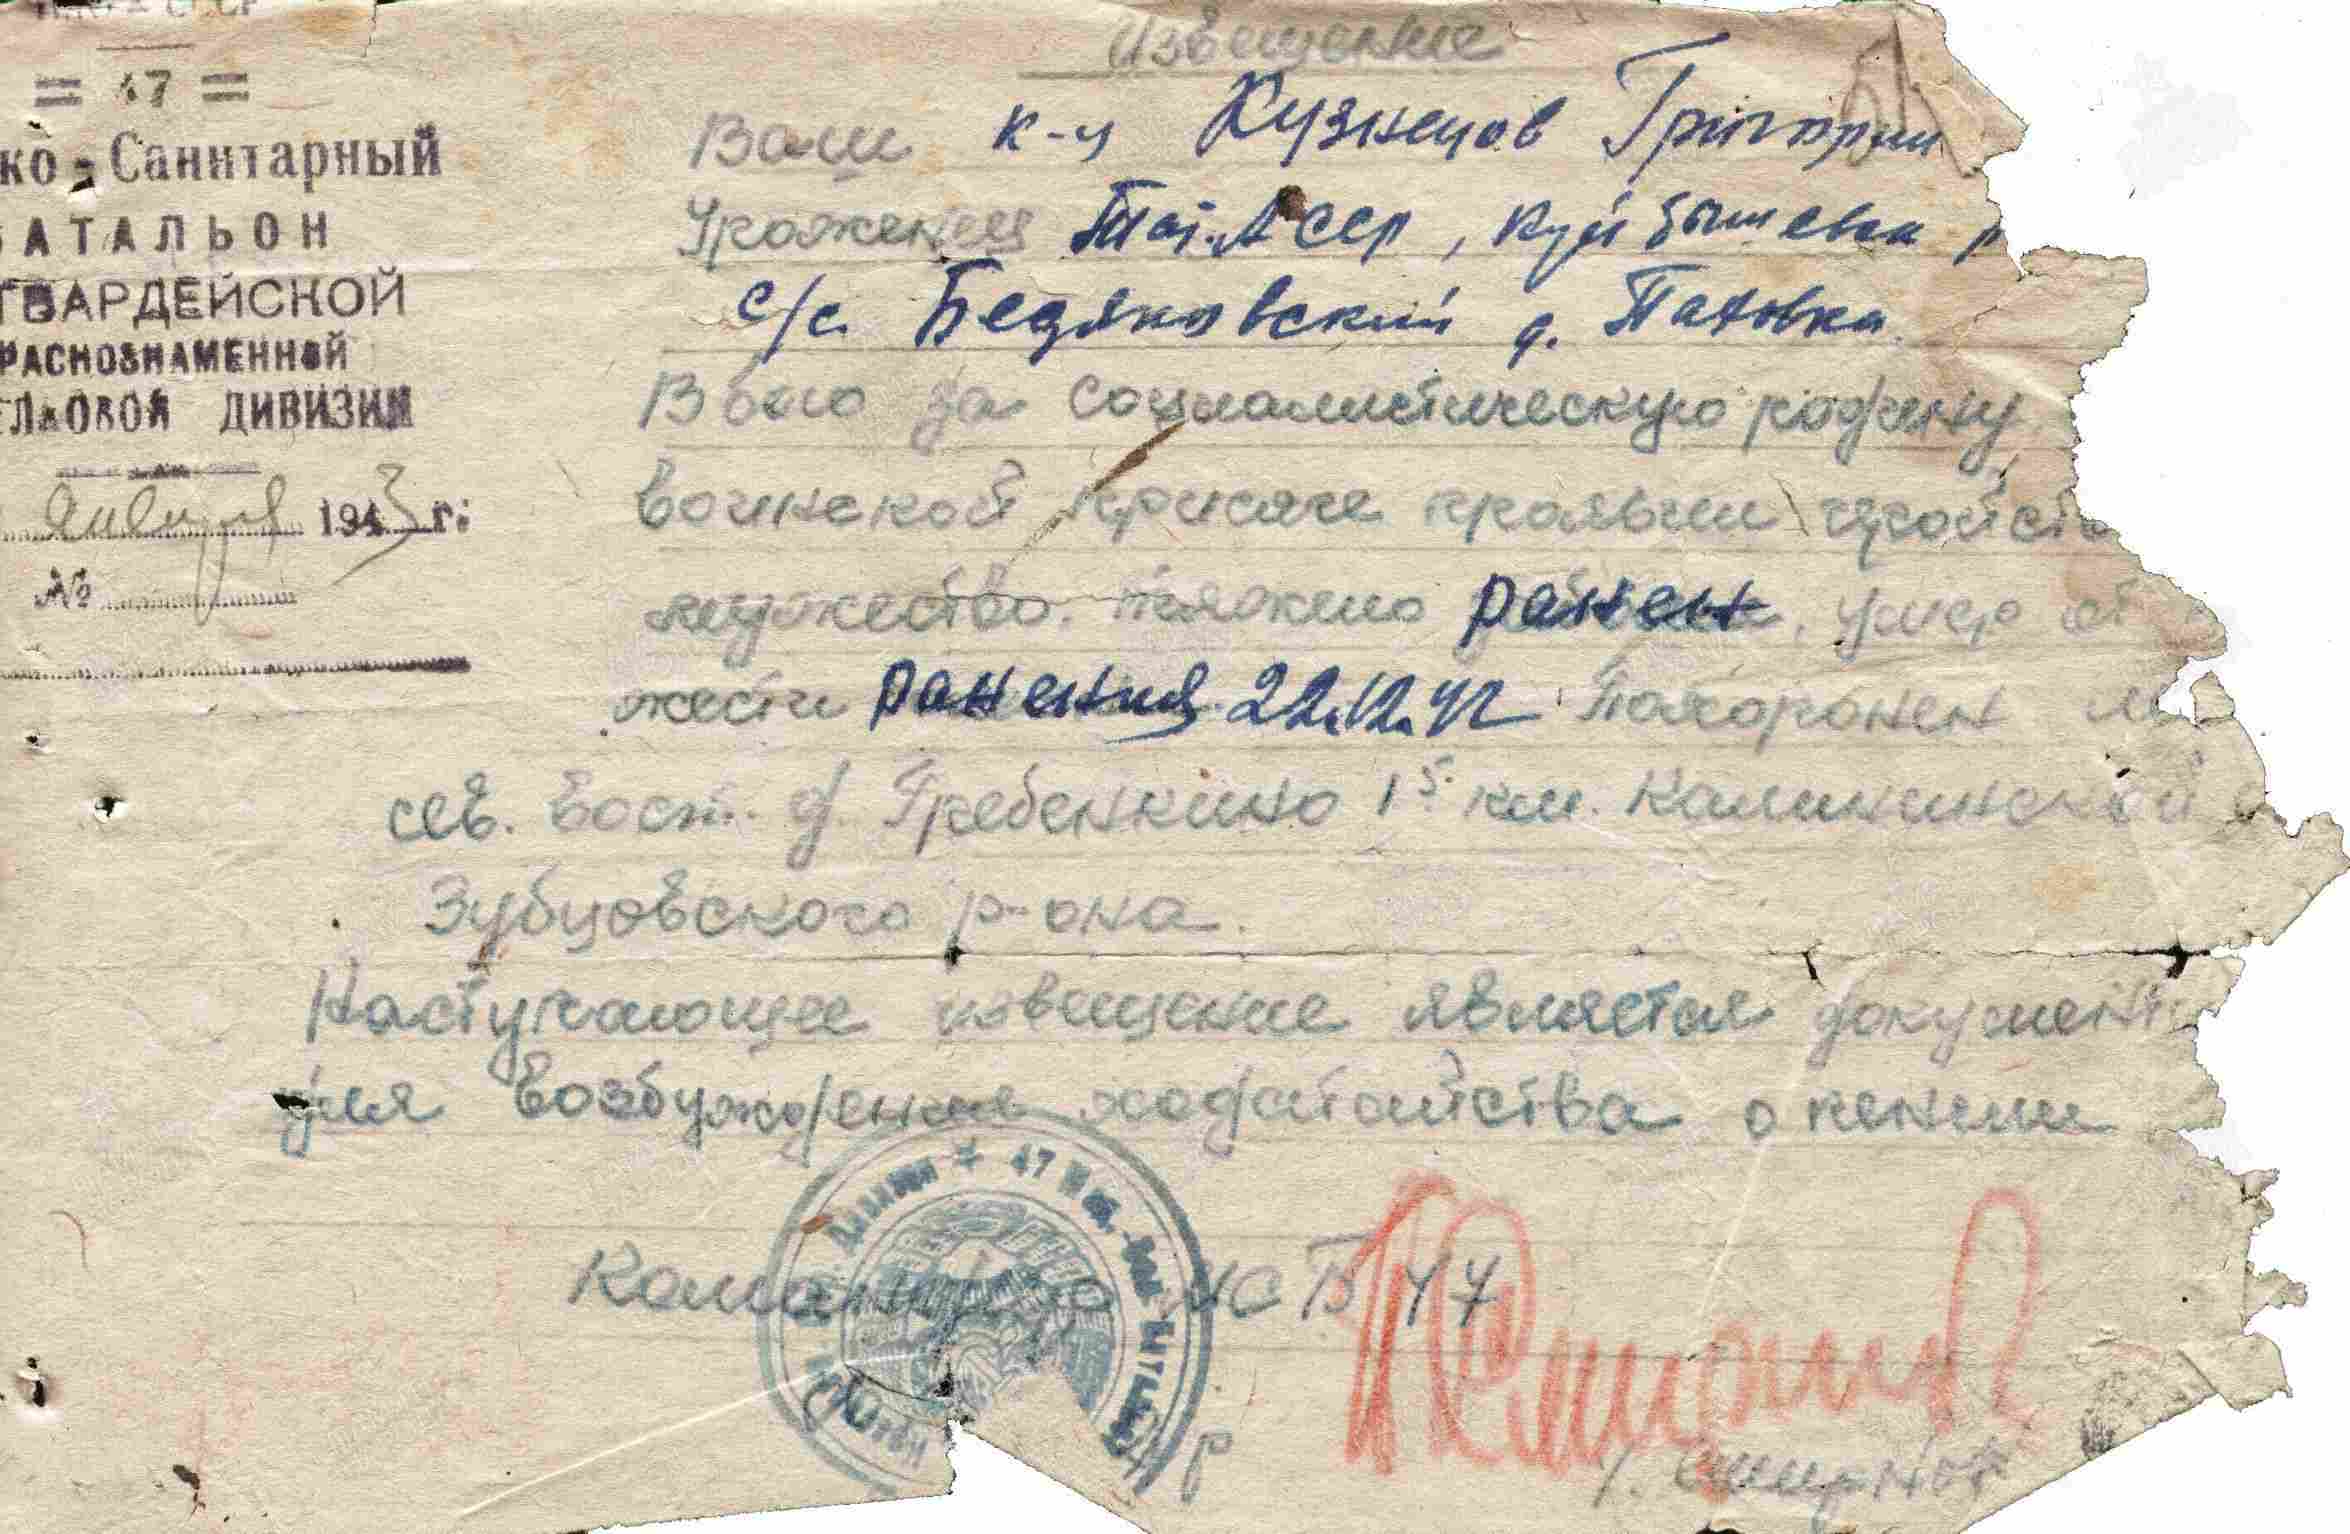 = 47 =
ко-Санитарный
БАТАЛЬОН
ГВАРДЕЙСКОЙ
РАСНОЗНАМЕННОЙ
ЕЛКОВОЙ ДИВИЗИИ
января 1943 г.
№
Извещение
Ваш к-ц Кузнецов Григорий
Уроженец Тат.АССР, Куйбышевск р
с/с. Бездяковский д. Татовка.
В бою за социалистическую родину
воинской присяге проявил геройств
мужество. тяжело ранен, умер от
жести ранения 22.12.42 Похоронен
сев. вост. д. Гребенкино 1 5 км. Калининской о
Зубцовского р-она.
Наступающее извещение является документ
для возбуждения ходатайства о пенсии
Командир МСБ 47
47 Мед.-Сан Бат
Дивизии